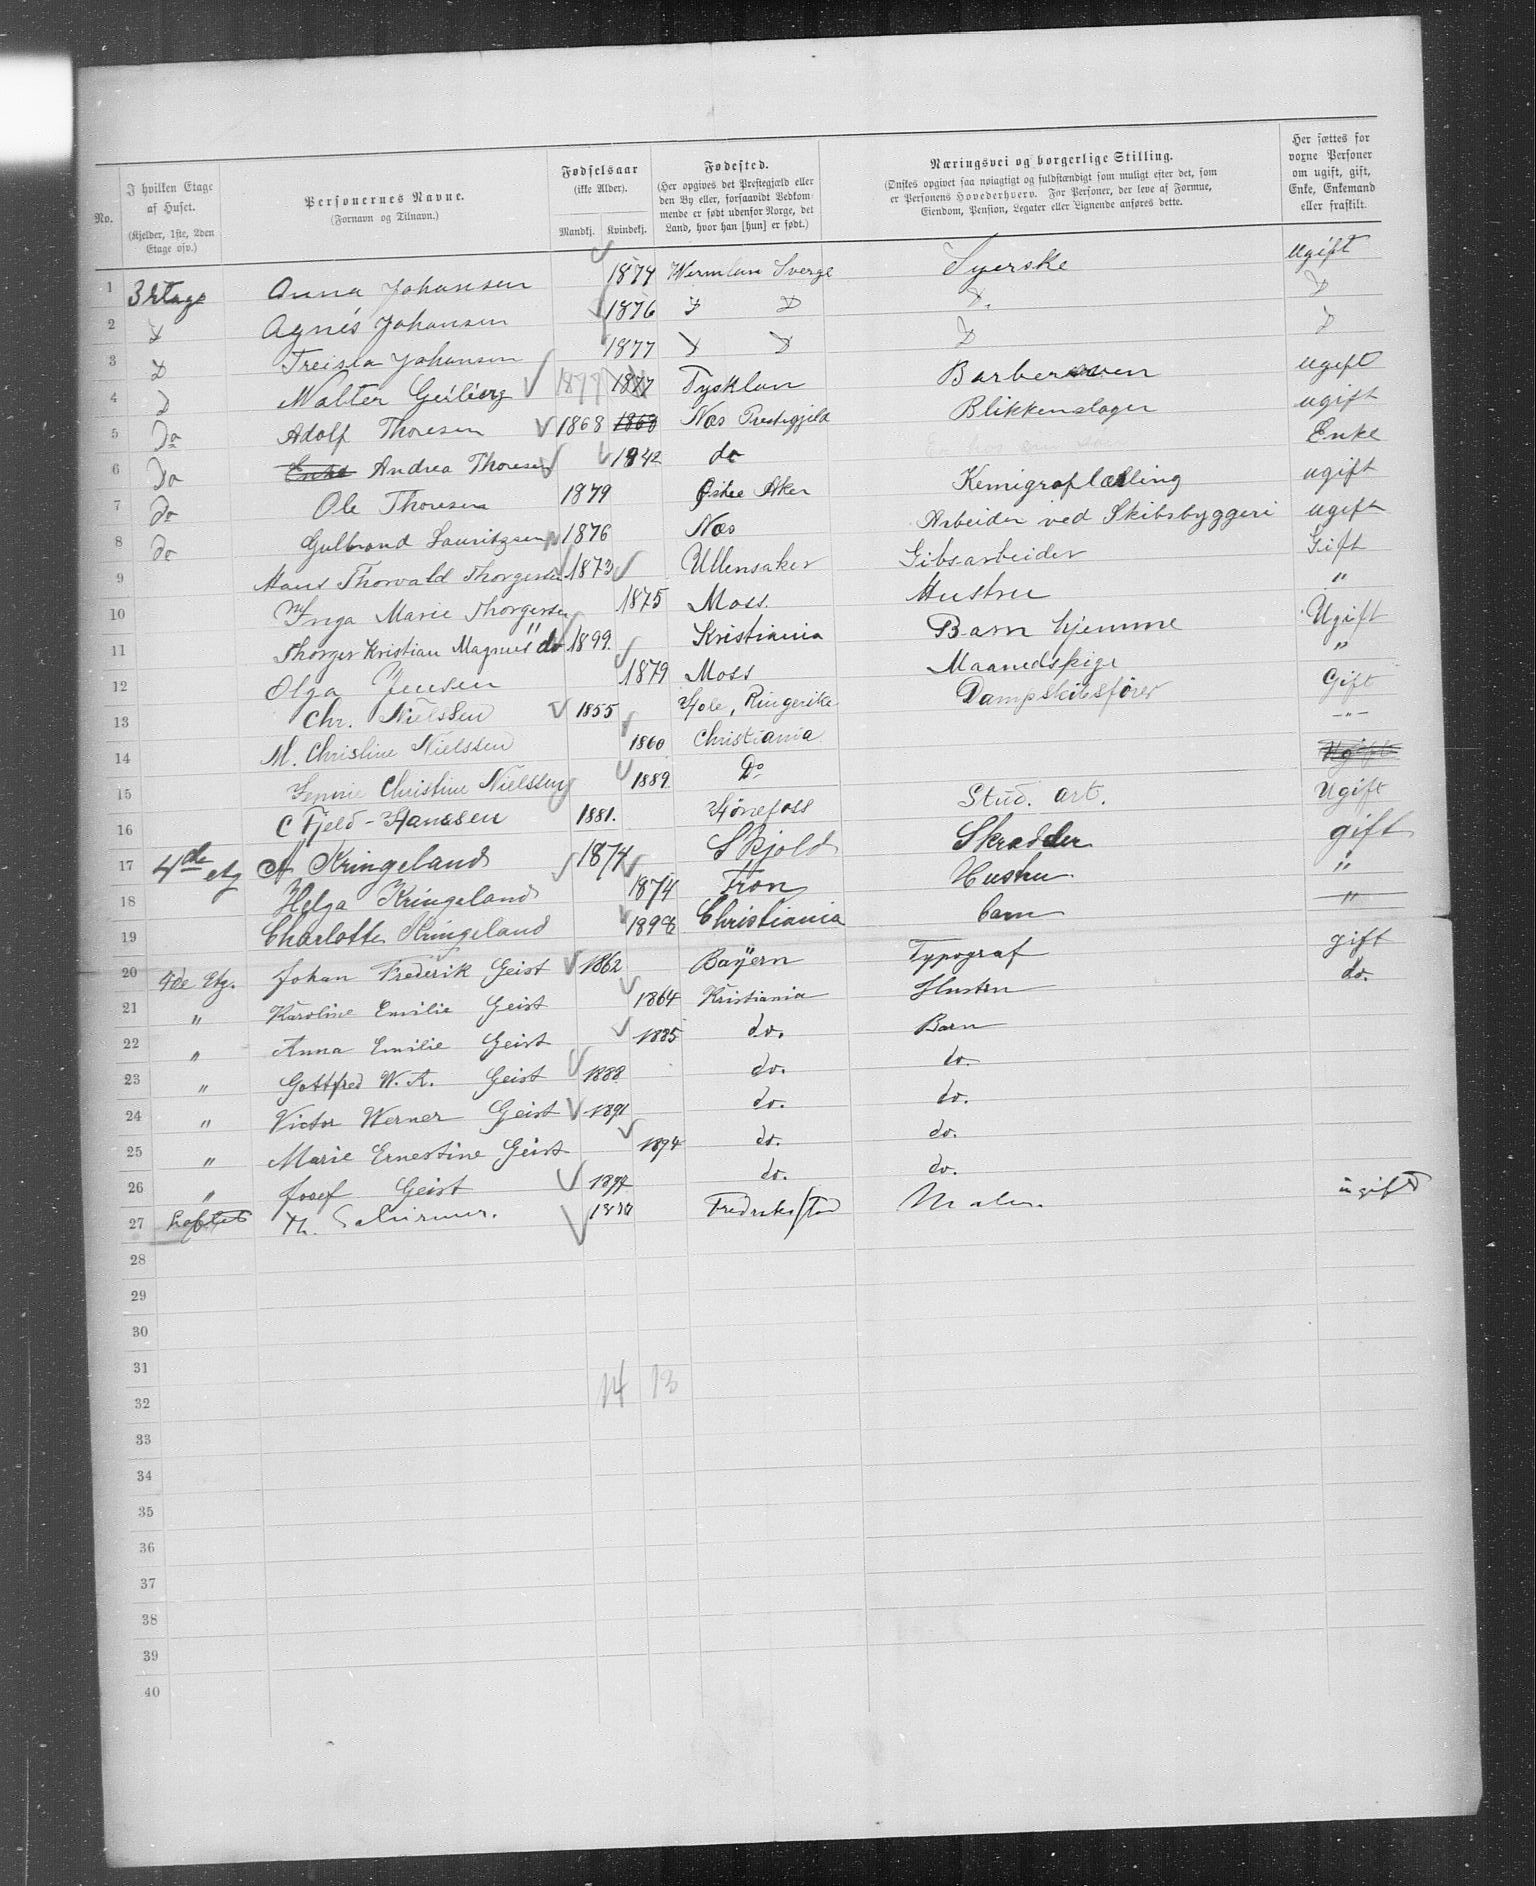 No.
I hvilken Etage af Huset. (Kjelder, 1ste, 2den Etage osv.)
Personernes Navne. (Fornavn og Tilnavn.)
Fødselsaar (ikke Alder). Mandkj. Kvindekj.
Fødested. (Her opgives det Prestegjæld eller den By eller, forsaavidt Vedkommende er født udenfor Norge, det Land, hvor han [hun] er født.)
Næringsvei og borgerlige Stilling. (Ønskes opgivet saa nøiagtigt og fuldstændigt som muligt efter det, som er Personens Hovederhverv. For Personer, der leve af Formue, Eiendom, Pension, Legater eller Lignende anføres dette.
Her sættes for voxne Personer om ugift, gift, Enke, Enkemand eller fraskilt.
1 3 Etage Anna Johansen 1874 Wermlan Sverge Syerske ugift
2 D Agnés Johansen 1876 D D D. D
3 D Johansen 1877 D D D D
4 D Walter 1877 1877 Tysklan Barbersven ugift
5 Do Adolf Thoresen 1868 1868 Næs Prestegjeld Blikkenslager ugift
6 Do Enke Andrea Thoresen 1842 do Enke
7 do Ole Thoresen 1879 Østre Aker Kemigraflærling ugift
8 do Gulbrand Lauritzsen 1876 Næs Arbeider ved Skibsbyggeri ugift
9 Hans Thorvald Thorgersen 1873 Ullensaker Gibsarbeider Gift
10 Inga Marie Thorgersen 1875 Moss. Hustru "
11 Thorger Kristian Magnus do 1899. Kristiania Barn hjemme Ugift
12 Olga Jensen 1879 Moss Maanedspige "
13 Chr. Nielssen 1855 Hole, Ringerike Dampskibsfører Gift
14 M. Christine Nielssen 1860 Christiania -"-
15 Jennie Christine Nielssen 1889 Do Ugift
16 C Fjeld-Hanssen 1881. Hønefoss Stud. art. Ugift
17 4de etg A Kringeland 1874 Skjold Skrædder gift
18 Helga Kringeland 1874 Tron Hustru "
19 Charlotte Kringeland 1898 Christiania barn "
20 4de Etg. Johan Frederik Geist 1862 Bayern Typograf gift
21 " Karoline Emilie Geist 1864 Kristiania Hustru do.
22 " Anna Emilie Geist 1885 do. Barn
23 " Gottfred W. A. Geist 1888 do. do.
24 " Victor Werner Geist 1891 do. do.
25 " Marie Ernestine Geist 1894 do. do.
26 " Josef Geist 1897 do. do.
27 Loftet H. Schirmer. Fredriksstad Maler. ugift
28
29
30
31
32 14 13
33
34
35
36
37
38
39
40